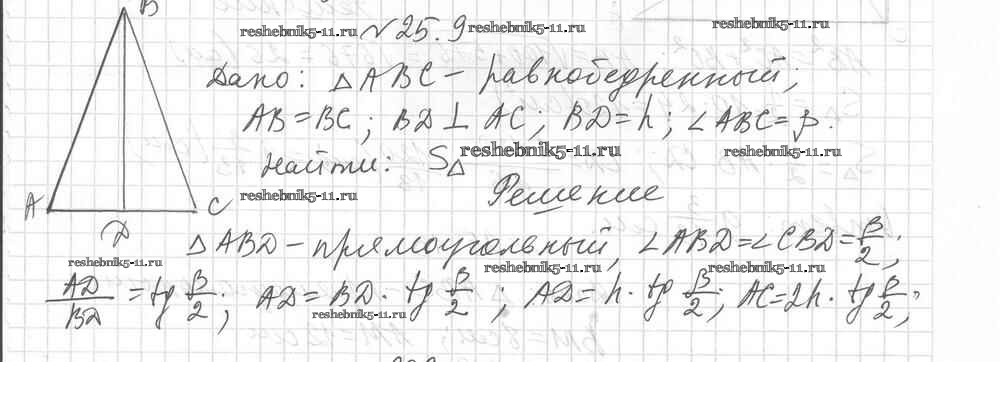 B
reshebnik5-11.ru № 25.9 reshebnik5-11.ru reshebnik5-11.ru
Дано: △ABC – равнобедренный,
AB = BC; BD ⊥ AC; BD = h; ∠ABC = β.
Найти: S△ reshebnik5-11.ru reshebnik5-11.ru
A C reshebnik5-11.ru Решение
D
reshebnik5-11.ru △ABD – прямоугольный, ∠ABD = ∠CBD = β/2;
reshebnik5-11.ru reshebnik5-11.ru
AD/BD = tg β/2; AD = BD · tg β/2; AD = h · tg β/2; AC = 2h · tg β/2;
reshebnik5-11.ru